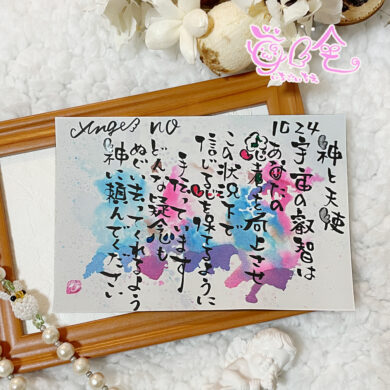 Angel no
1024
神と天使
宇宙の叡智は
あなたの
思考を向上させ
この状況下で
信じる心を保てるように
手伝っています
どんな疑念も
ぬぐい去ってくれるよう
神に頼んでください